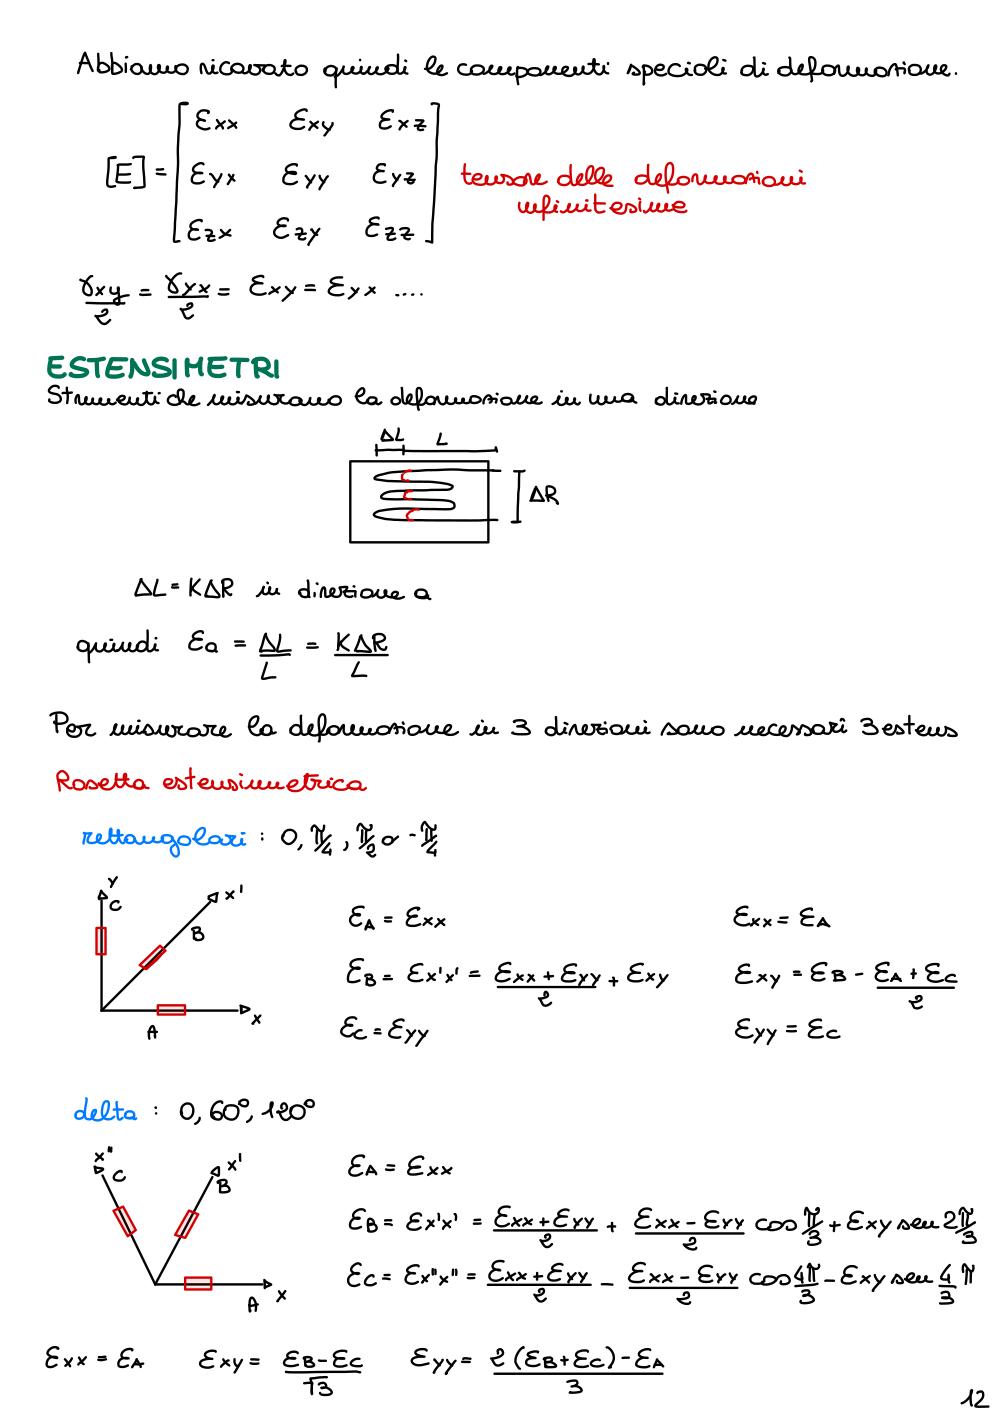 Abbiamo ricavato quindi le componenti speciali di deformazione.
[E] = [ εxx εxy εxz
εyx εyy εyz
εzx εzy εzz ]
tensore delle deformazioni
infinitesime
γxy/2 = γyx/2 = εxy = εyx ....
ESTENSIMETRI
Strumenti che misurano la deformazione in una direzione
ΔL L
ΔR
ΔL = KΔR in direzione a
quindi εa = ΔL/L = KΔR/L
Per misurare la deformazione in 3 direzioni sono necessari 3 estens
Rosetta estensimetrica
rettangolari : 0, π/4, π/2 o -π/4
y
C
x'
B
x
A
εA = εxx
εB = εx'x' = (εxx + εyy)/2 + εxy
εC = εyy
εxx = εA
εxy = εB - (εA + εC)/2
εyy = εC
delta : 0, 60°, 120°
x"
C
x'
B
x
A
εA = εxx
εB = εx'x' = (εxx + εyy)/2 + (εxx - εyy)/2 cos π/3 + εxy sen 2π/3
εC = εx"x" = (εxx + εyy)/2 - (εxx - εyy)/2 cos 4π/3 - εxy sen 4/3 π
εxx = εA εxy = (εB - εC)/√3 εyy = (2(εB + εC) - εA)/3
12